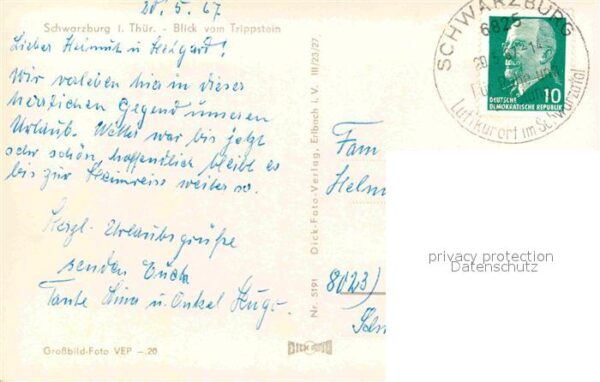 20.5.67
Schwarzburg i. Thür. - Blick vom Trippstein
Lieber Helmut u. Irmgard!
Wir verleben hier in dieser
herrlichen Gegend unseren
Urlaub. Wetter war bis jetzt
sehr schön, hoffentlich bleibt es
bis zur Heimreise weiter so.
Herzl. Urlaubsgrüße
senden Euch
Tante Lina u. Onkel Hugo.
Großbild-Foto VEP -.20
Nr. 5191 Dick-Foto-Verlag, Erlbach i. V. III/23/27
DICK FOTO
Fam
Helm
8023)
SCHWARZBURG
6825
20.5.
Luftkurort im Schwarzatal
10
DEUTSCHE
DEMOKRATISCHE REPUBLIK
privacy protection
Datenschutz